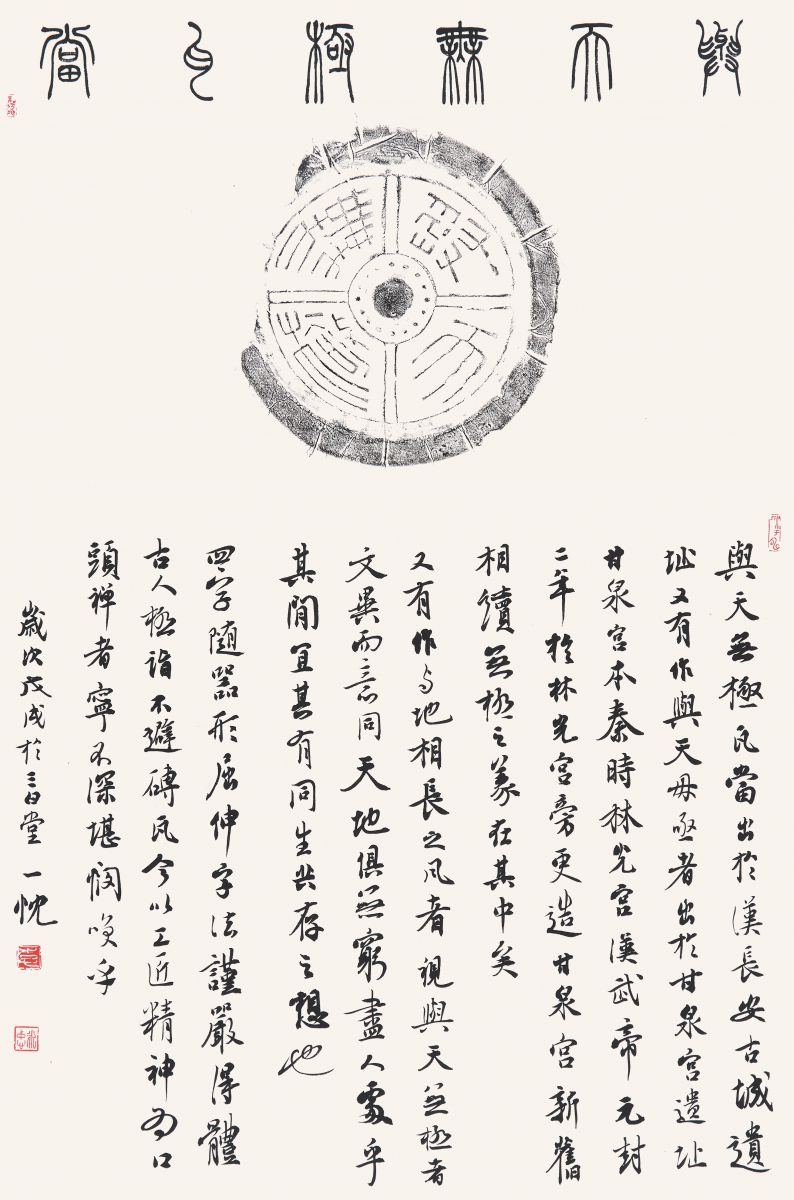 與天無極瓦當
與天無極
與天無極瓦當出於漢長安古城遺
址又有作與天毋亟者出於甘泉宮遺址
甘泉宮本秦時林光宮漢武帝元封
二年於林光宮旁更造甘泉宮新舊
相續無極之義在其中矣
又有作与地相長之瓦者視與天無極者
文異而意同天地俱無窮盡人處乎
其間宜其有同生共存之想也
四字随器形屈伸字法謹嚴得體
古人極詣不避磚瓦今以工匠精神為口
頭禅者寧不深堪憫嘆乎
歲次戊戌於堂一忱